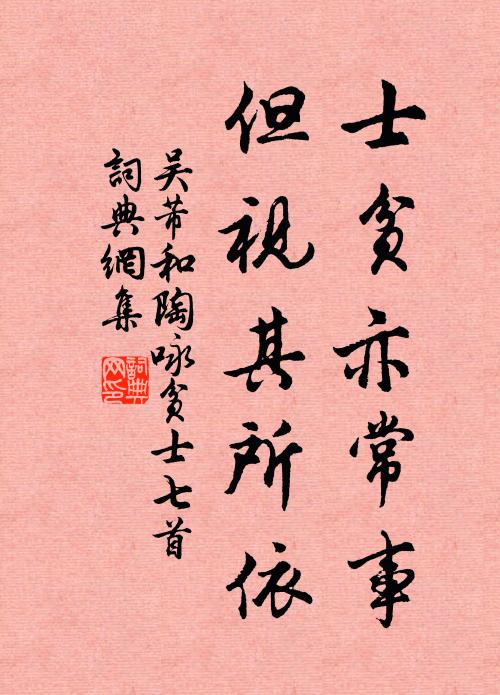 士貧亦常事
但視其所依
吴芾和陶咏貧士七首
詞典網集
詞典
网印